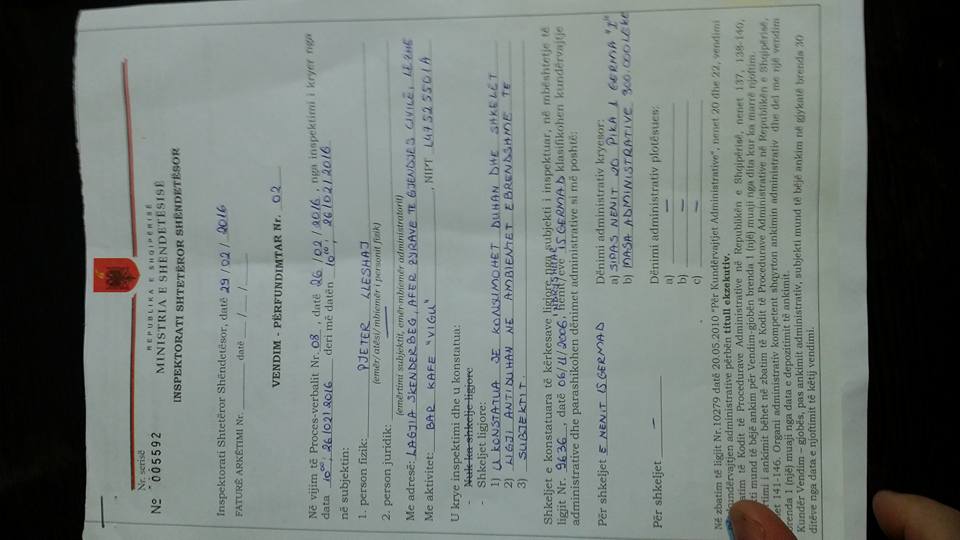 REPUBLIKA E SHQIPËRISË
MINISTRIA E SHËNDETËSISË
INSPEKTORATI SHTETËROR SHËNDETËSOR
Nr. serisë
Nº 005592
Inspektorati Shtetëror Shëndetësor, datë 29/02/2016
FATURË ARKËTIMI Nr. datë / /
VENDIM - PËRFUNDIMTAR Nr. 02
Në vijim të Proces-verbalit Nr. 08, datë 26/02/2016, nga inspektimi i kryer nga
data 10⁰⁰; 26/02/2016 deri më datën 10⁰⁰; 26/02/2016
në subjektin:
1. person fizik: PJETER LLESHAJ
(emër/atësi/mbiemër i personit fizik)
2. person juridik: —
(emërtimi subjektit, emër mbiemër administratorit)
Me adresë: LAGJIA SKENDERBEG, AFER ZYRAVE TE GJENDJES CIVILE, LEZHE
Me aktivitet: BAR KAFE "VIGU", NIPT L47525501A
U krye inspektimi dhe u konstatua:
- Nuk ka shkelje ligjore
- Shkeljet ligjore:
1) U KONSTATUA SE KONSUMOHET DUHAN DHE SHKELET
2) LIGJI ANTIDUHAN NE AMBIENTET E BRENDSHME TE
3) SUBJEKTIT.
Shkeljet e konstatuara të kërkesave ligjore nga subjekti i inspektuar, në mbështetje të
ligjit Nr. 9636, datë 06/11/2006, neni/eve 15 GERMA D klasifikohen kundërvajtje
administrative dhe parashikohen dënimet administrative si më poshtë:
Për shkeljet E NENIT 15 GERMA D
Dënimi administrativ kryesor:
a) SIPAS NENIT 20 PIKA 1 GERMA "I"
b) MASA ADMINISTRATIVE 300.000 LEKE
Për shkeljet —
Dënimi administrativ plotësues:
a) —
b) —
c) —
Në zbatim të ligjit Nr.10279 datë 20.05.2010 "Për Kundërvajtjet Administrative", nenet 20 dhe 22, vendimi
kundërvajtjen administrative përbën titull ekzekutiv.
zbatim të Kodit të Procedurave Administrative në Republikën e Shqipërisë, nenet 137, 138-140,
mund të bëjë ankim për Vendim-gjobën brenda 1 (një) muaji nga dita kur ka marrë njoftim.
i ankimit bëhet në zbatim të Kodit të Procedurave Administrative në Republikën e Shqipërisë,
141-146. Organi administrativ kompetent shqyrton ankimin administrativ dhe del me një vendim
brenda 1 (një) muaji nga data e depozitimit të ankimit.
Kundër Vendim - gjobës, pas ankimit administrativ, subjekti mund të bëjë ankim në gjykatë brenda 30
ditëve nga data e njoftimit të këtij vendimi.